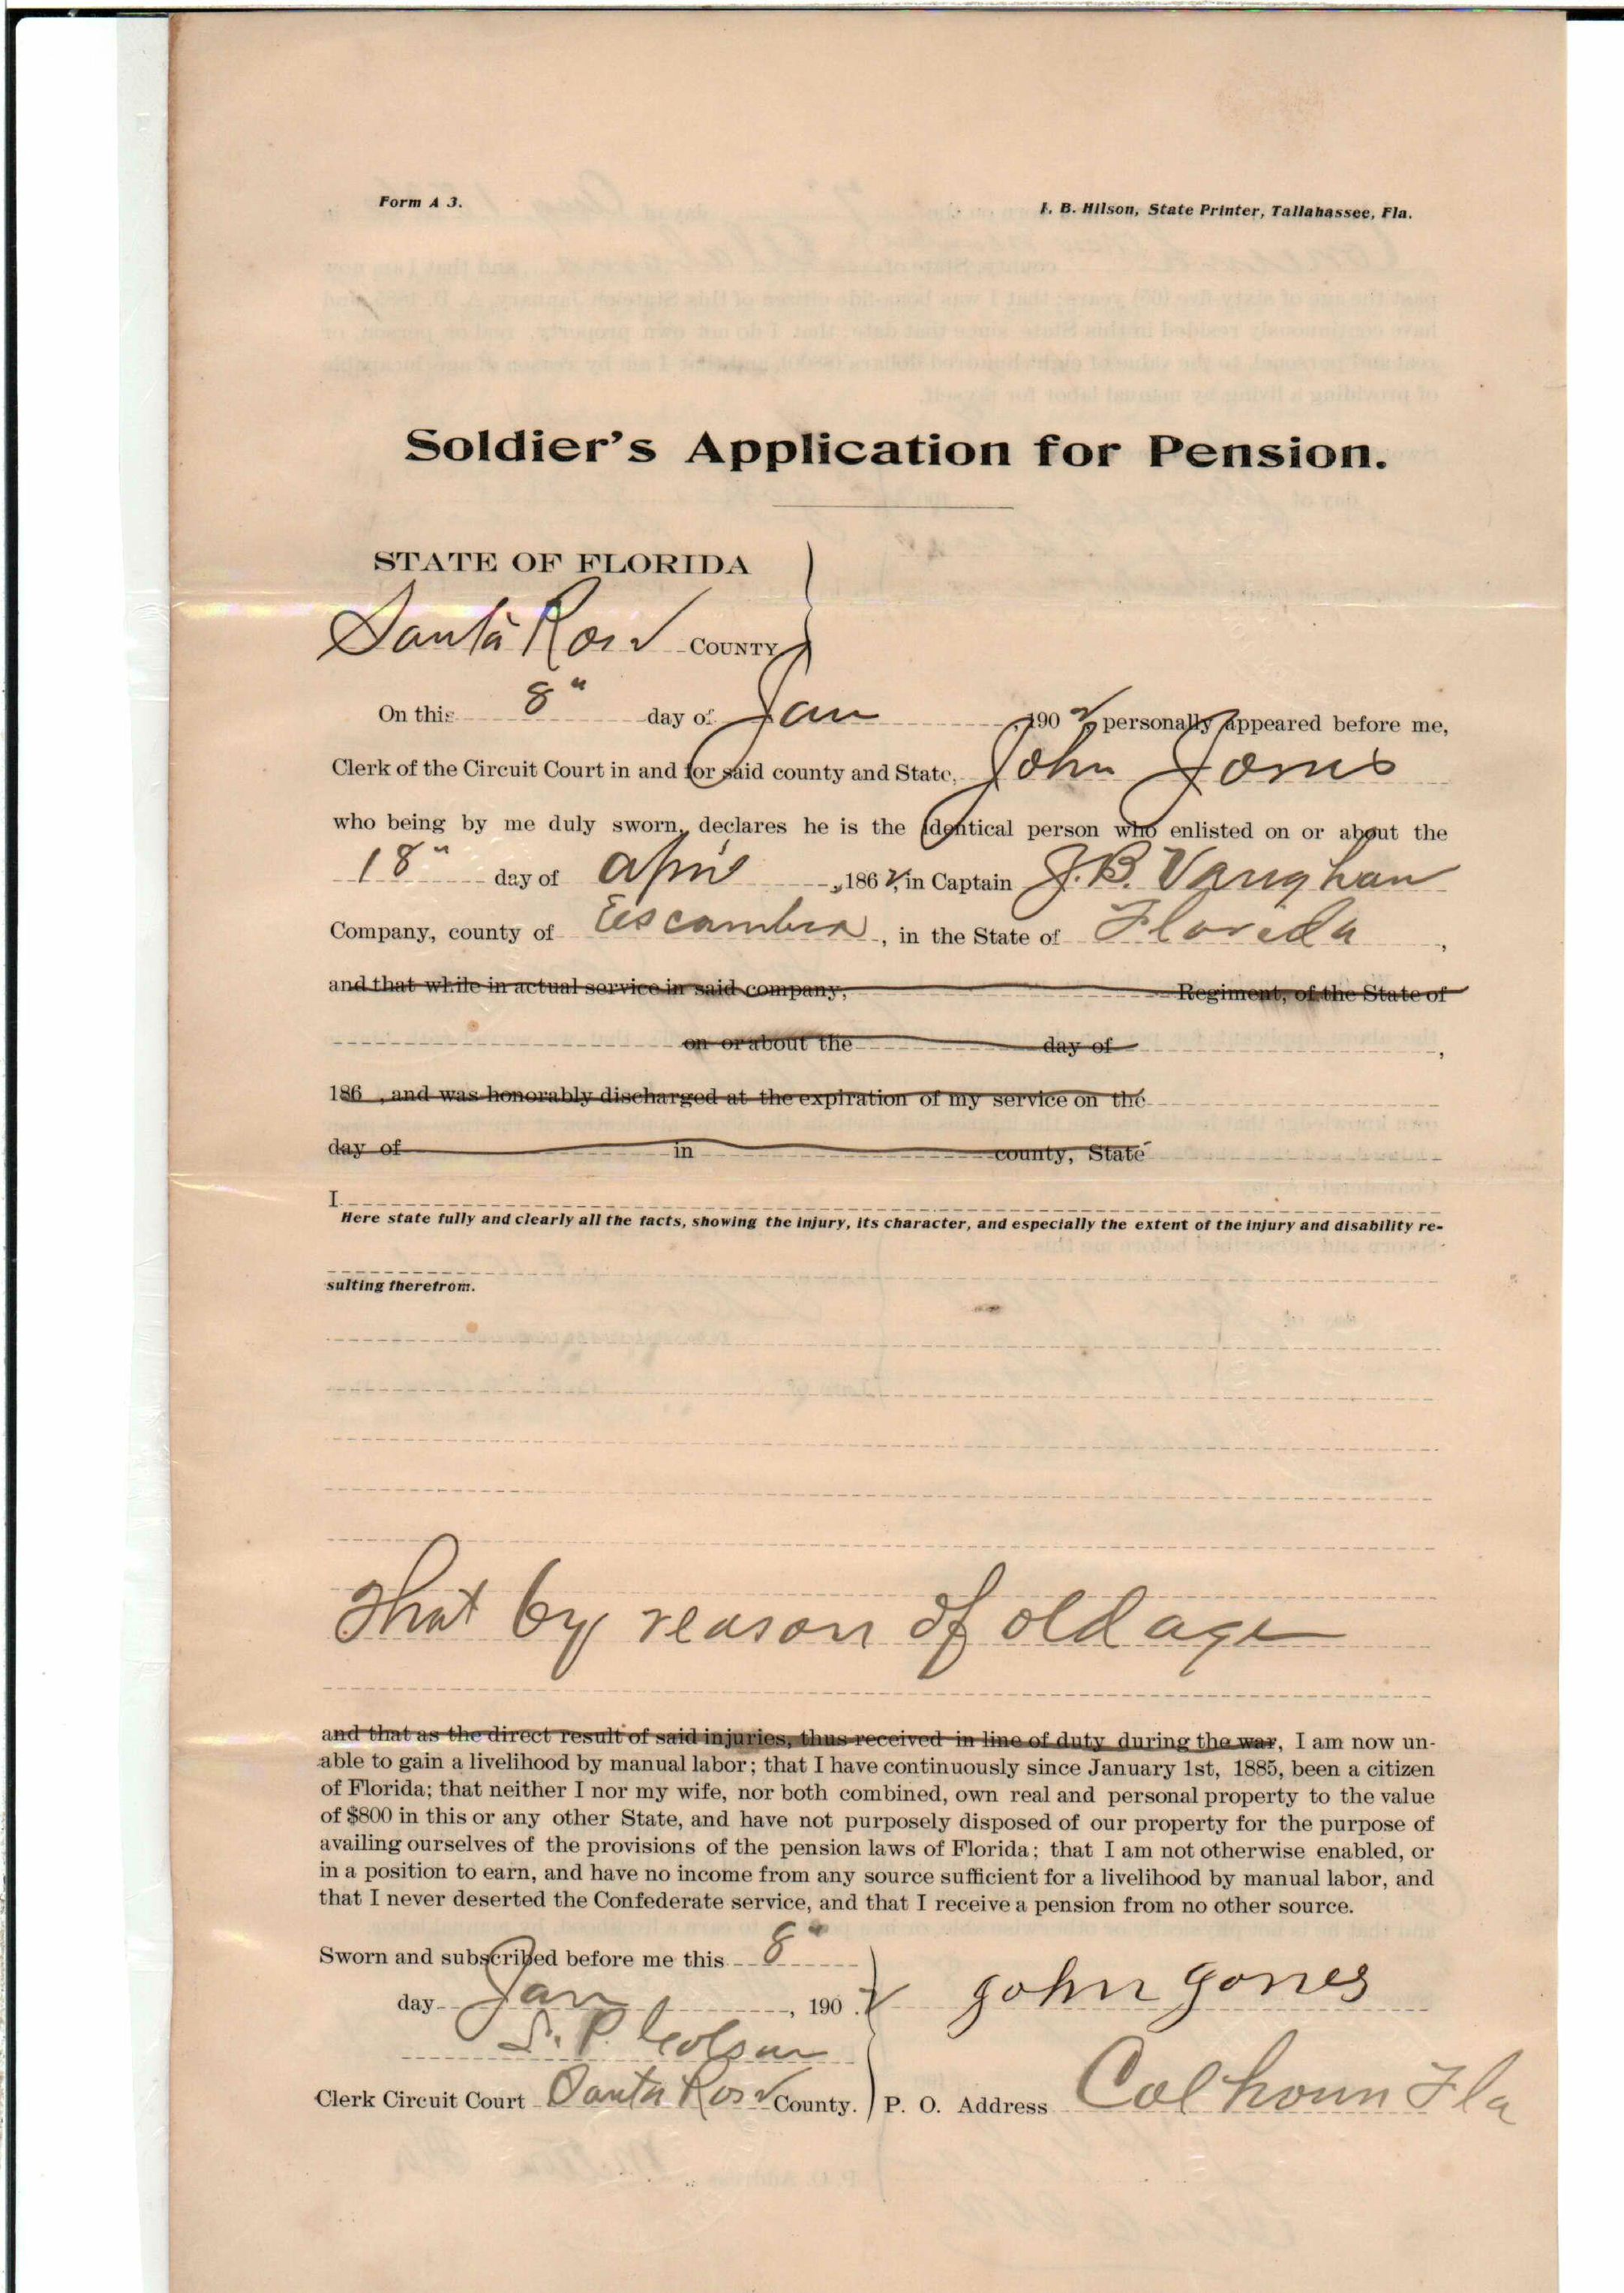 Form A 3.
I. B. Hilson, State Printer, Tallahassee, Fla.
Soldier's Application for Pension.
STATE OF FLORIDA
Santa Rosa COUNTY
On this 8" day of Jan 1902, personally appeared before me,
Clerk of the Circuit Court in and for said county and State, John Jones
who being by me duly sworn, declares he is the identical person who enlisted on or about the
18" day of April, 1862, in Captain J. B. Vaughan
Company, county of Escambia, in the State of Florida,
and that while in actual service in said company, Regiment, of the State of
on or about the day of ,
186 , and was honorably discharged at the expiration of my service on the
day of in county, State
I
Here state fully and clearly all the facts, showing the injury, its character, and especially the extent of the injury and disability re-
sulting therefrom.
That by reason of old age
and that as the direct result of said injuries, thus received in line of duty during the war, I am now un-
able to gain a livelihood by manual labor; that I have continuously since January 1st, 1885, been a citizen
of Florida; that neither I nor my wife, nor both combined, own real and personal property to the value
of $800 in this or any other State, and have not purposely disposed of our property for the purpose of
availing ourselves of the provisions of the pension laws of Florida; that I am not otherwise enabled, or
in a position to earn, and have no income from any source sufficient for a livelihood by manual labor, and
that I never deserted the Confederate service, and that I receive a pension from no other source.
Sworn and subscribed before me this 8"
day Jan, 1902 John Jones
Clerk Circuit Court Santa Rosa County. P. O. Address Calhoun Fla